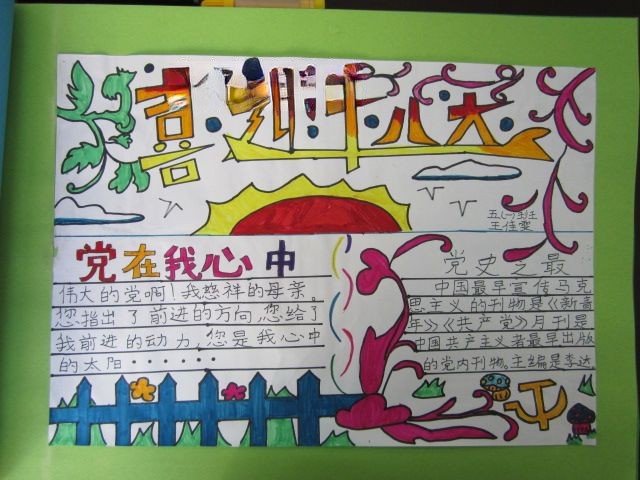 喜迎十八大
五(一)班
王佳雯
党在我心中
伟大的党啊！我慈祥的母亲。
您指出了前进的方向,您给了
我前进的动力,您是我心中
的太阳······
党史之最
中国最早宣传马克
思主义的刊物是《新青
年》《共产党》月刊是
中国共产主义者最早出版
的党内刊物。主编是李达